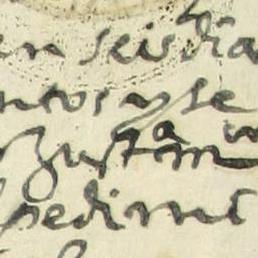 en seis dia
ntos y se
Justam
pedimi